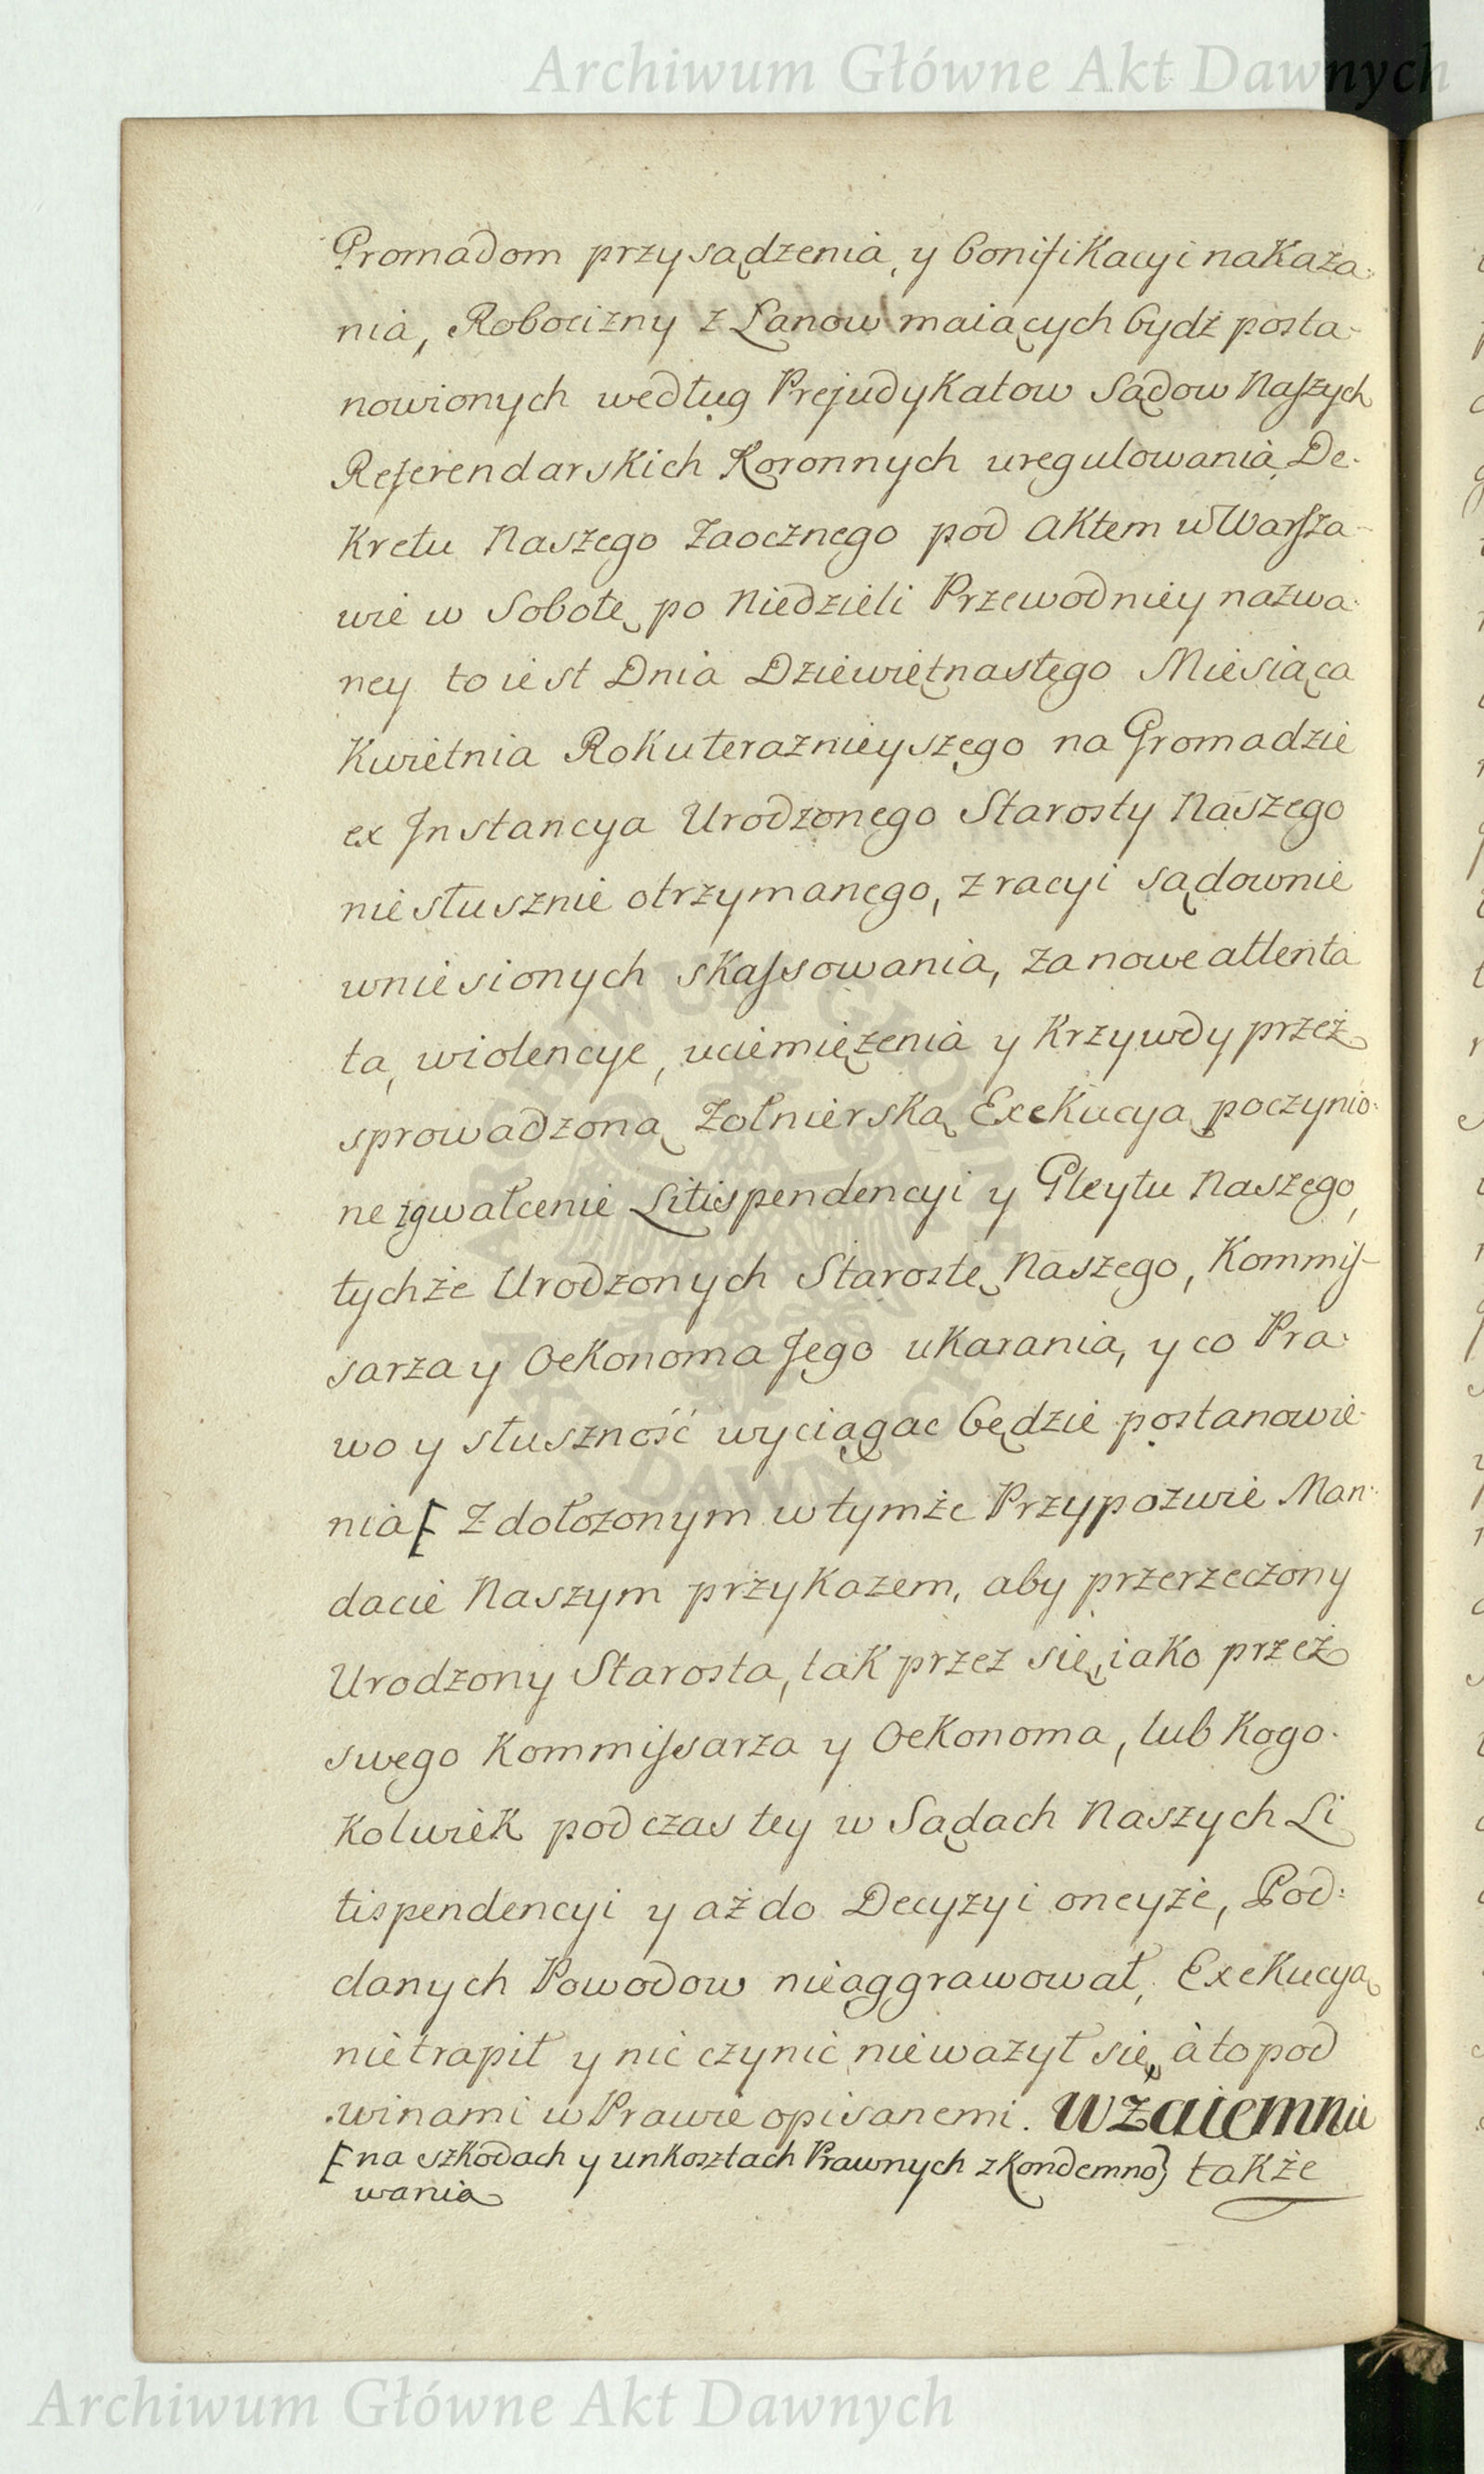 Archiwum Główne Akt Dawnych
Gromadom przysądzenia, y bonifikacyi nakaza-
nia, Robocizny z Łanow maiących bydź posta-
nowionych według Prejudykatow Sądow Naszych
Referendarskich Koronnych uregulowania, De-
kretu Naszego Zaocznego pod Aktem w Warsza-
wie w Sobotę po Niedzieli Przewodniey nazwa-
ney to iest Dnia Dziewiętnastego Miesiąca
Kwietnia Roku teraznieyszego na Gromadzie
ex Instancya Urodzonego Starosty Naszego
niesłusznie otrzymanego, z racyi sądownie
wniesionych skassowania, za nowe attenta
ta, wiolencye, uciemiężenia y krzywdy przez
sprowadzoną Zołnierską Exekucyą poczynio-
ne zgwałcenie Litispendencyi y Gleytu Naszego,
tychże Urodzonych Starostę Naszego, Kommis-
sarza y Oekonoma Jego ukarania, y co Pra-
wo y słuszność wyciągac będzie postanowie-
nia [ Z dołozonym w tymże Przypozwie Man-
dacie Naszym przykazem, aby przerzeczony
Urodzony Starosta, tak przez się, iako przez
swego Kommissarza y Oekonoma, lub kogo-
kolwiek podczas tey w Sądach Naszych Li
tispendencyi y aż do Decyzyi oneyże, Pod-
danych Powodow nieaggrawował, Exekucyą
nietrapił y nic czynic nieważył się, à to pod
winami w Prawie opisanemi. Wzaiemnie
[ na szkodach y unkosztach Prawnych zkondemno} także
wania
ARCHIWUM GŁÓWNE AKT DAWNYCH
Archiwum Główne Akt Dawnych